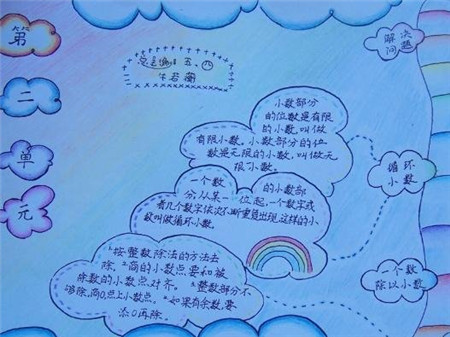 第
二
单
元
五、四
小数部分
的位数是有限
的小数,叫做
有限小数。小数部分的位
数是无限的小数,叫做无
限小数。
一个数的小数部
分,从某一位起,一个数字或
者几个数字依次不断重复出现,这样的小
数叫做循环小数。
1按整数除法的方法去
除,2商的小数点要和被
除数的小数点对齐。3整数部分不
够除,商0,点上小数点。4如果有余数,要
添0再除。
解决
问题
循环
小数
一个数
除以小数